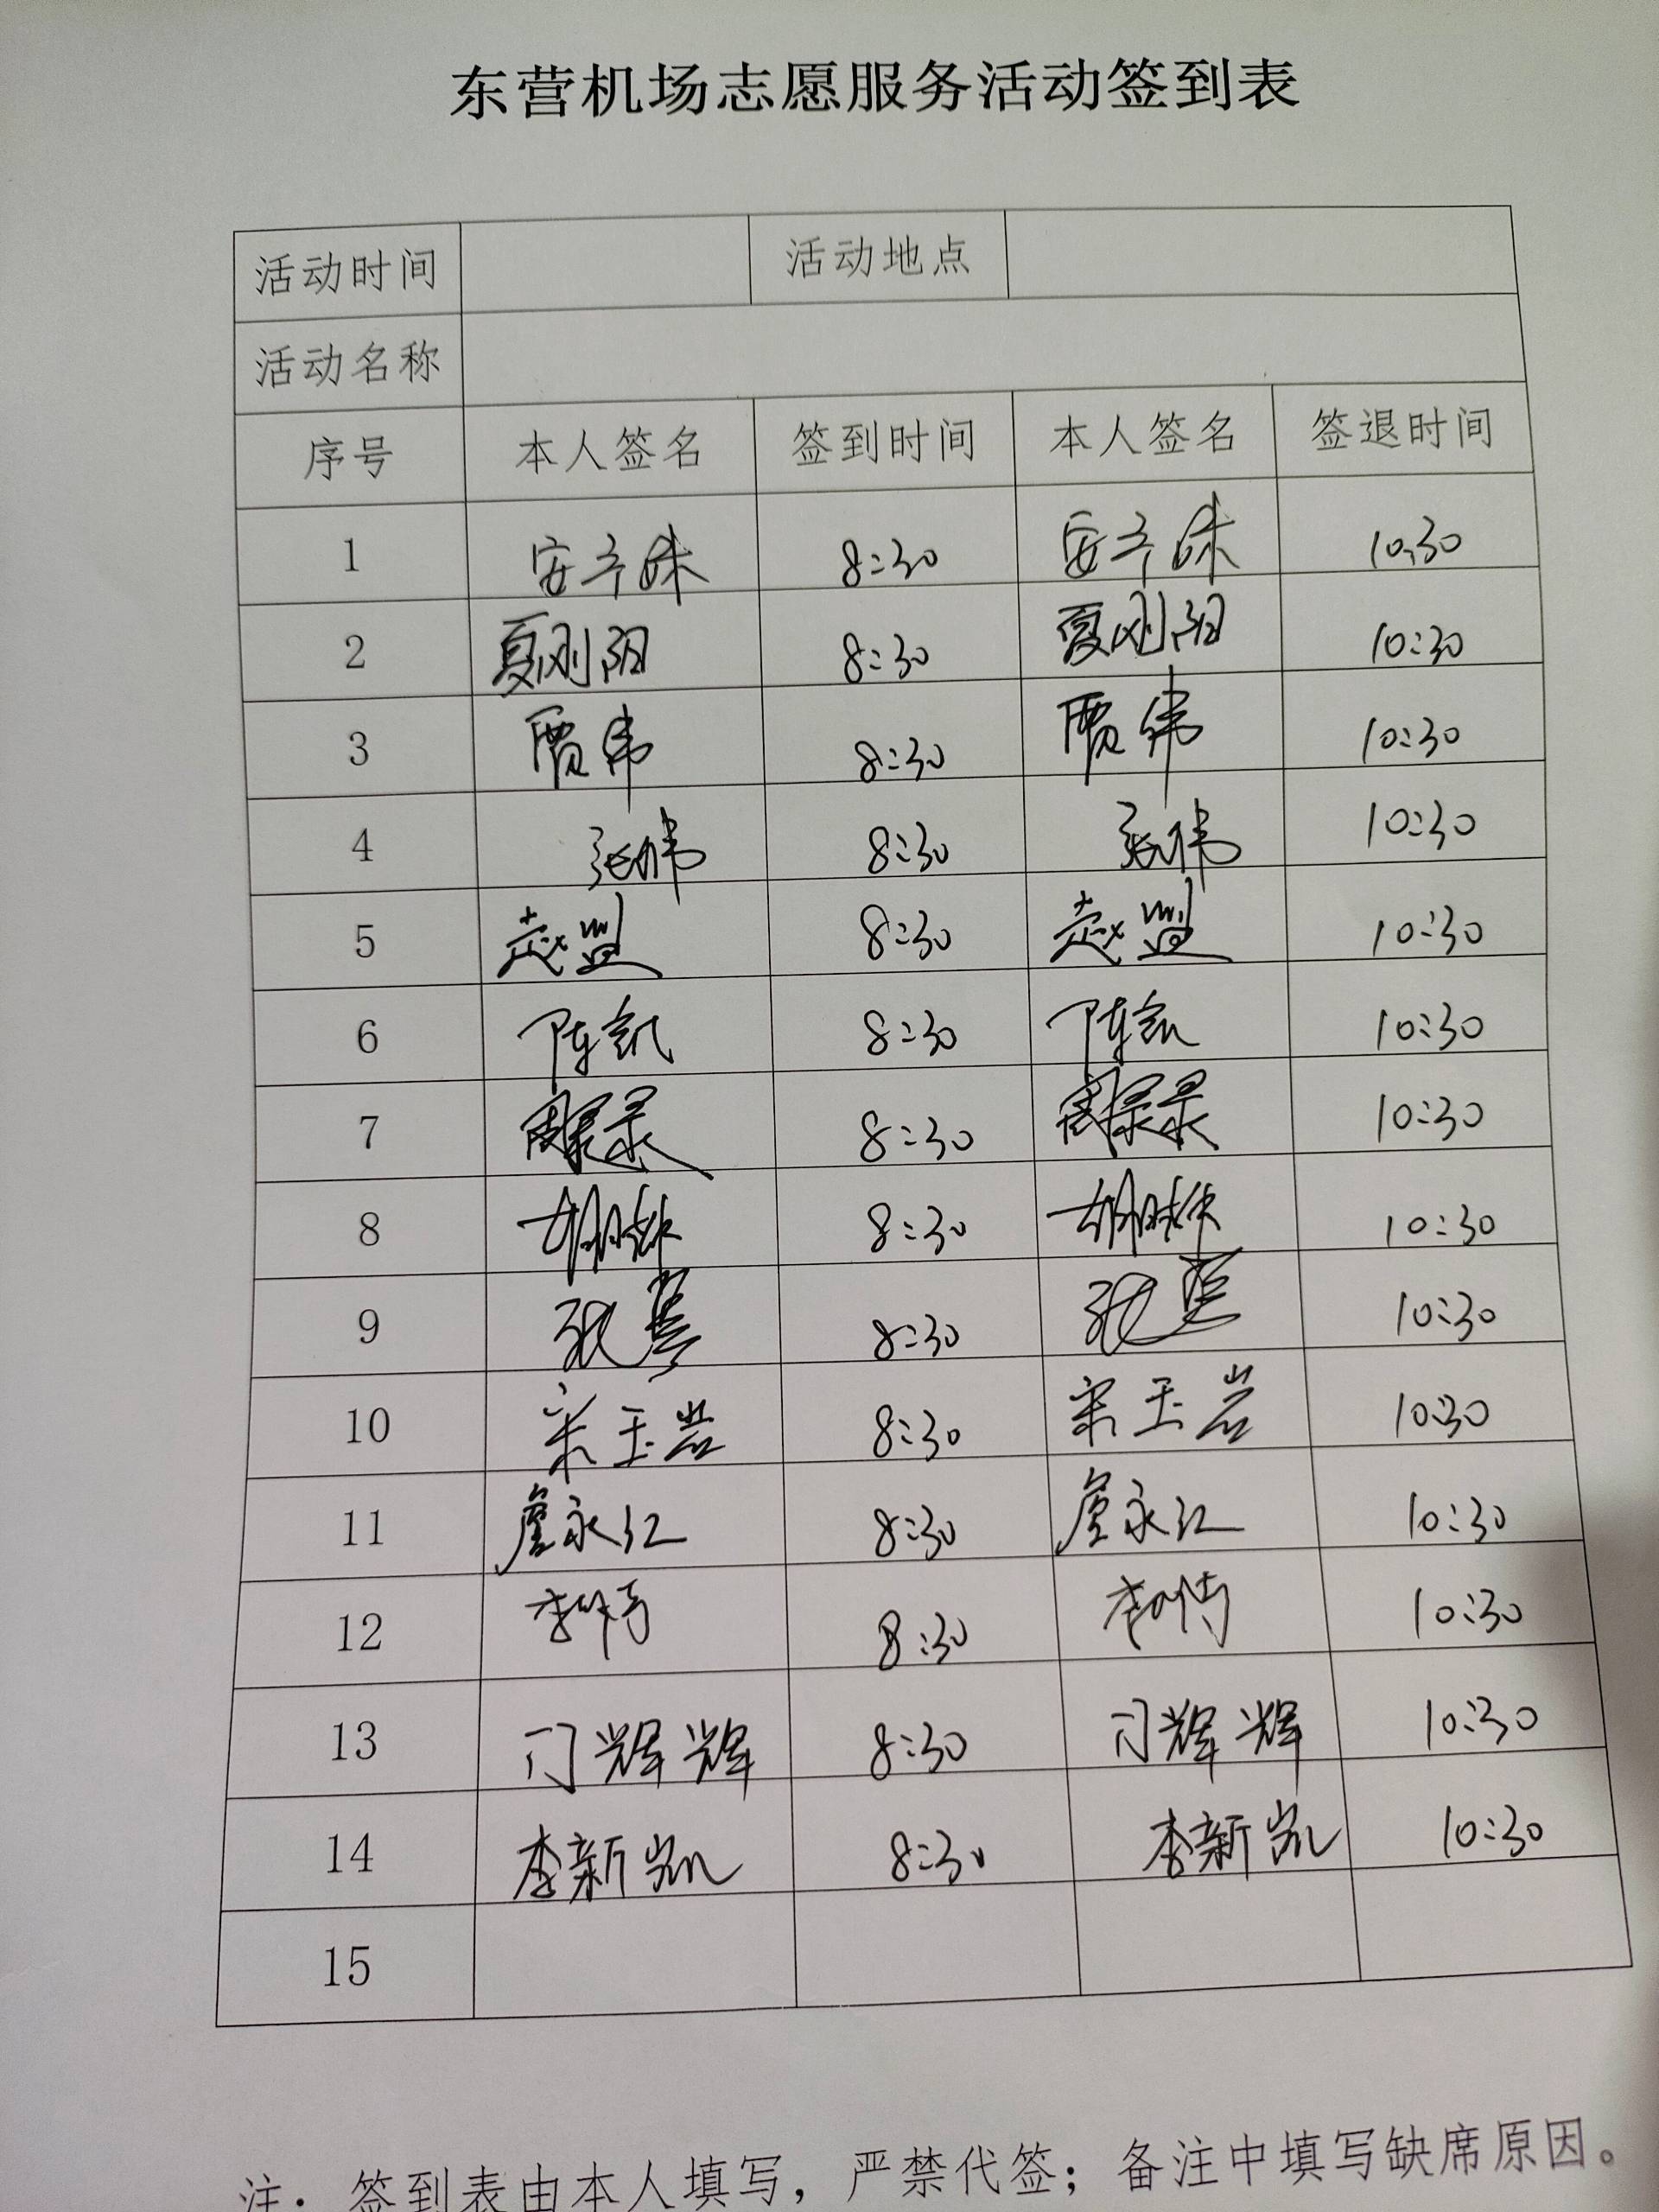 东营机场志愿服务活动签到表
活动时间 活动地点
活动名称
序号 本人签名 签到时间 本人签名 签退时间
1 8:30 10:30
2 夏刚阳 8:30 夏刚阳 10:30
3 贾伟 8:30 贾伟 10:30
4 张伟 8:30 张伟 10:30
5 赵盟 8:30 赵盟 10:30
6 陈凯 8:30 陈凯 10:30
7 8:30 10:30
8 8:30 10:30
9 8:30 10:30
10 宋玉岩 8:30 宋玉岩 10:30
11 8:30 10:30
12 8:30 10:30
13 门辉辉 8:30 门辉辉 10:30
14 李新凯 8:30 李新凯 10:30
15
注：签到表由本人填写，严禁代签；备注中填写缺席原因。